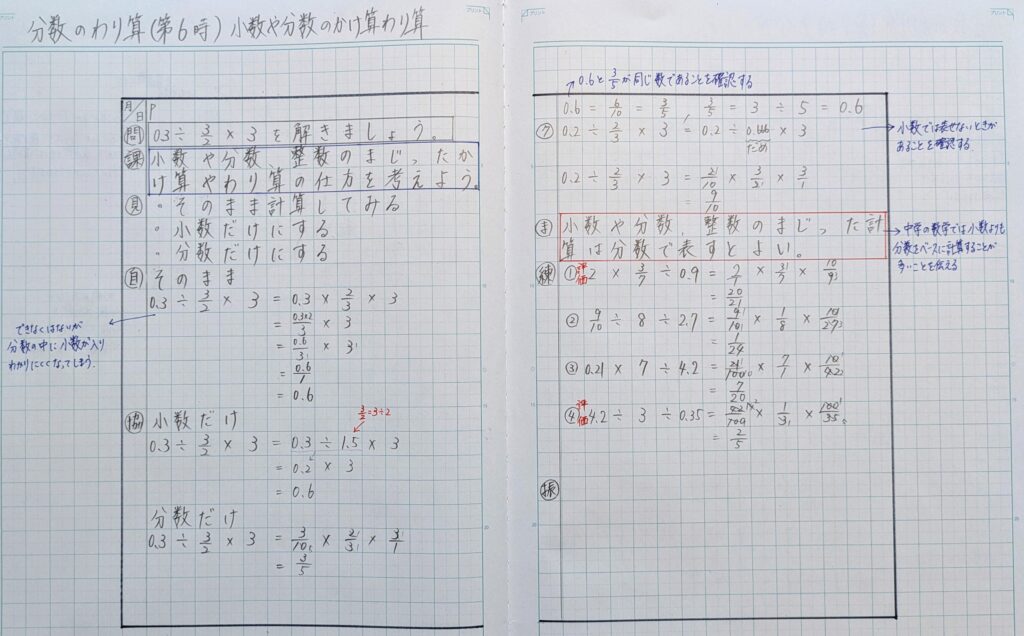 分数のわり算(第6時)小数や分数のかけ算わり算
月/日 P
問 0.3÷3/2×3を解きましょう。
課 小数や分数、整数のまじった か
け算やわり算の仕方を考えよう。
見 ・そのまま計算してみる
・小数だけにする
・分数だけにする
自 そのまま
0.3÷3/2×3=0.3×2/3×3
=0.3×2/3×3
=0.6/3×3
=0.6/1
=0.6
できなくはないが
分数の中に小数が入り
わかりにくくなってしまう.
協 小数だけ
3/2=3÷2
0.3÷3/2×3=0.3÷1.5×3
=0.2×3
=0.6
分数だけ
0.3÷3/2×3=3/10×2/3×3/1
=3/5
→0.6と3/5が同じ数であることを確認する
0.6=6/10=3/5, 3/5=3÷5=0.6
0.2÷2/3×3=0.2÷0.666×3
だめ
→小数では表せないときが
あることを確認する
0.2÷2/3×3=2/10×3/2×3/1
=9/10
ま 小数や分数、整数のまじった計
算は分数で表すとよい。
→中学の数学では小数よりも
分数をベースに計算することが
多いことを伝える
練 ①評価 2×3/7÷0.9=2/1×3/7×10/9
=20/21
② 9/10÷8÷2.7=9/10×1/8×10/27
=1/24
③ 0.21×7÷4.2=21/100×7/1×10/42
=7/20
④評価 4.2÷3÷0.35=42/10×1/3×100/35
=2/5
振